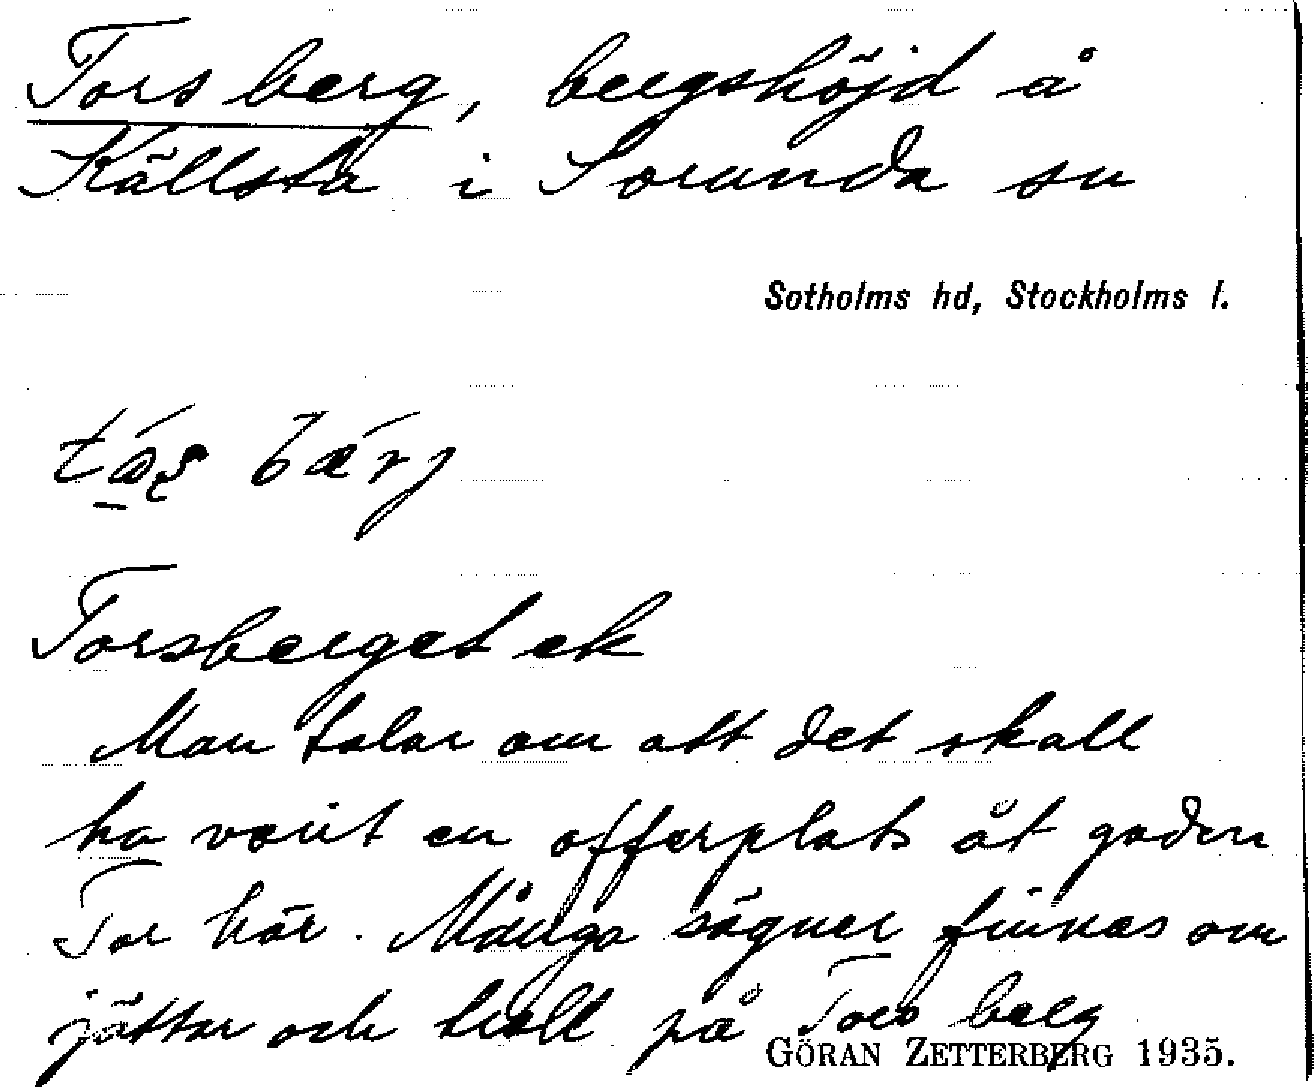 Tors berg, bergshöjd å
Källsta i Sorunda sn
Sotholms hd, Stockholms l.
bærj
Torsberget ek
Man talar om att det skall
ha varit en offerplats åt guden
Tor här. Många sägner finnas om
jättar och troll på Tors berg
GÖRAN ZETTERBERG 1935.